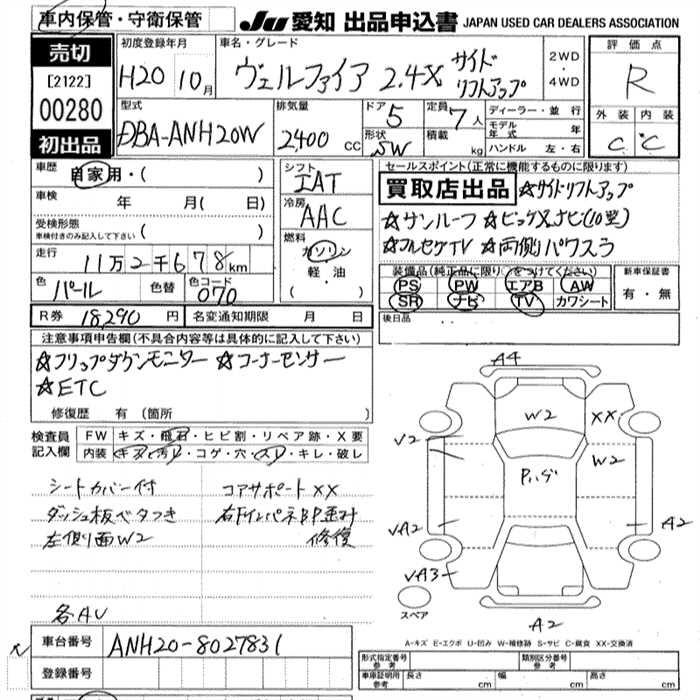 車内保管・守衛保管
JU 愛知 出品申込書 JAPAN USED CAR DEALERS ASSOCIATION
売切
[2122]
00280
初出品
初度登録年月
H20 10月
車名・グレード
ヴェルファイア 2.4X サイドリフトアップ
2WD・4WD
評価点
R
外装 内装
C C
型式
DBA-ANH20W
排気量
2400 cc
ドア 5
形状 SW
定員 7人
積載 kg
ディーラー・並行
モデル年式 年
ハンドル 左・右
車歴 自家用・( )
車検 年 月( 日)
受検形態
車検付きのみ記入して下さい ( )
走行 11万2千678km
色 パール 色替 色コード 070
シフト IAT
冷房 AAC
燃料 ガソリン
軽・油
・( )
セールスポイント(正常に機能するものに限ります)
買取店出品 ☆サイドリフトアップ
☆サンルーフ ☆ビックXナビ(10型)
☆フルセグTV ☆両側パワスラ
装備品(純正品に限り○をつけてください)
PS PW エアB AW
SR ナビ TV カワシート
新車保証書
有・無
後日品
R券 18,290円 名変通知期限 月 日
注意事項申告欄(不具合内容等は具体的に記入して下さい)
☆フリップダウンモニター ☆コーナーセンサー
☆ETC
修復歴 有 (箇所 )
検査員記入欄
FW キズ・飛石・ヒビ割・リペア跡・X要
内装 キズ・汚れ・コゲ・穴・スレ・キレ・破レ
シートカバー付 コアサポートXX
ダッシュ板ベタつき 右ドインパネBP歪み
左側面W2 修復
各AU
A4
W2
XX
V2
W2
Pルーフ
VA2
A2
VA3
スペア
A2
A-キズ E-エクボ U-凹み W-補修跡 S-サビ C-腐食 XX-交換済
車台番号 ANH20-8027831
登録番号
形式指定番号参考 類別区分番号参考
車庫証明用参考 長さ cm 幅 cm 高さ cm